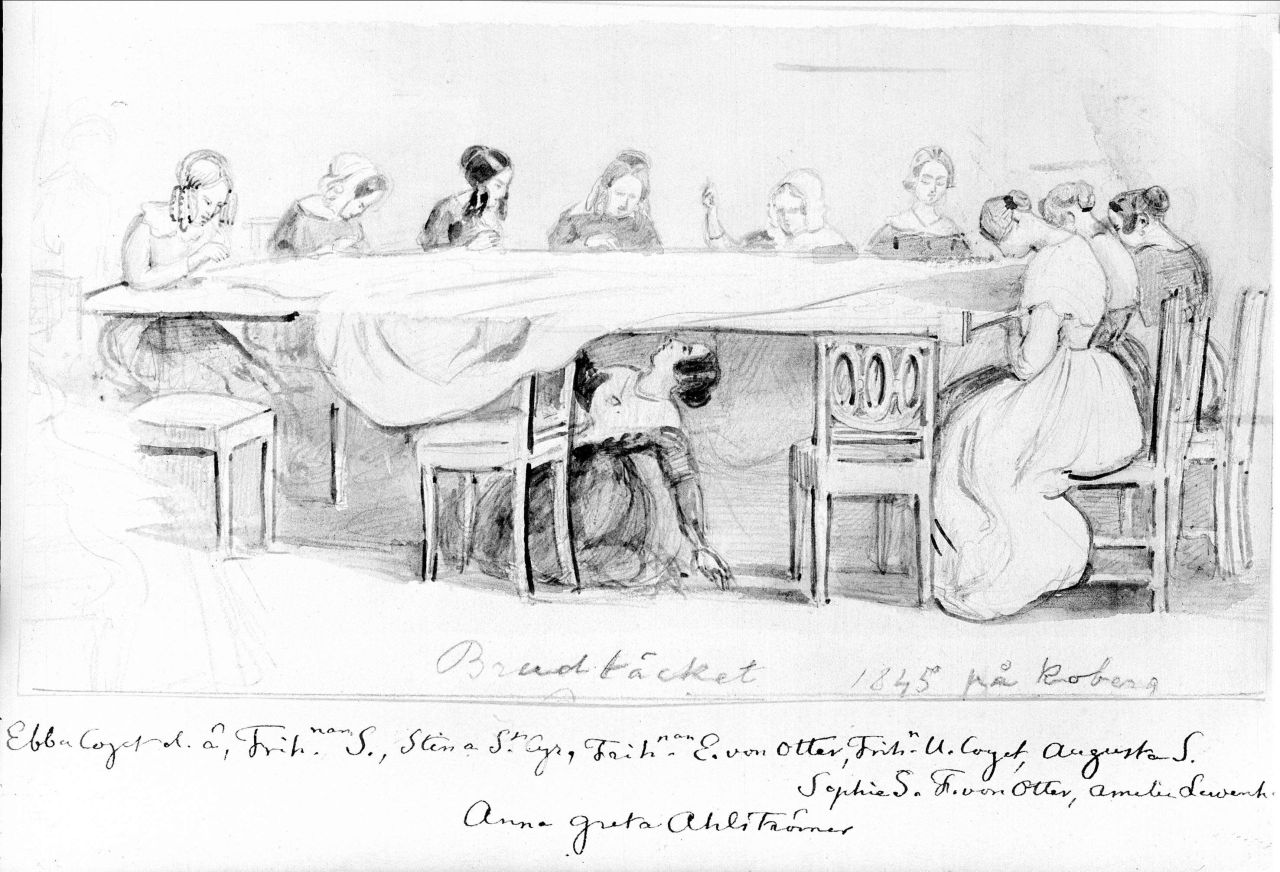 Brudtäcket 1845 på Koberg
Ebba Coyet d. ä, Frih.nan S., Stina St Cyr, Frih.nan E. von Otter, Frih.n U. Coyet, Augusta S.
Sophie S. F. von Otter, Amelie Lewenh.
Anna Greta Ahlströmer